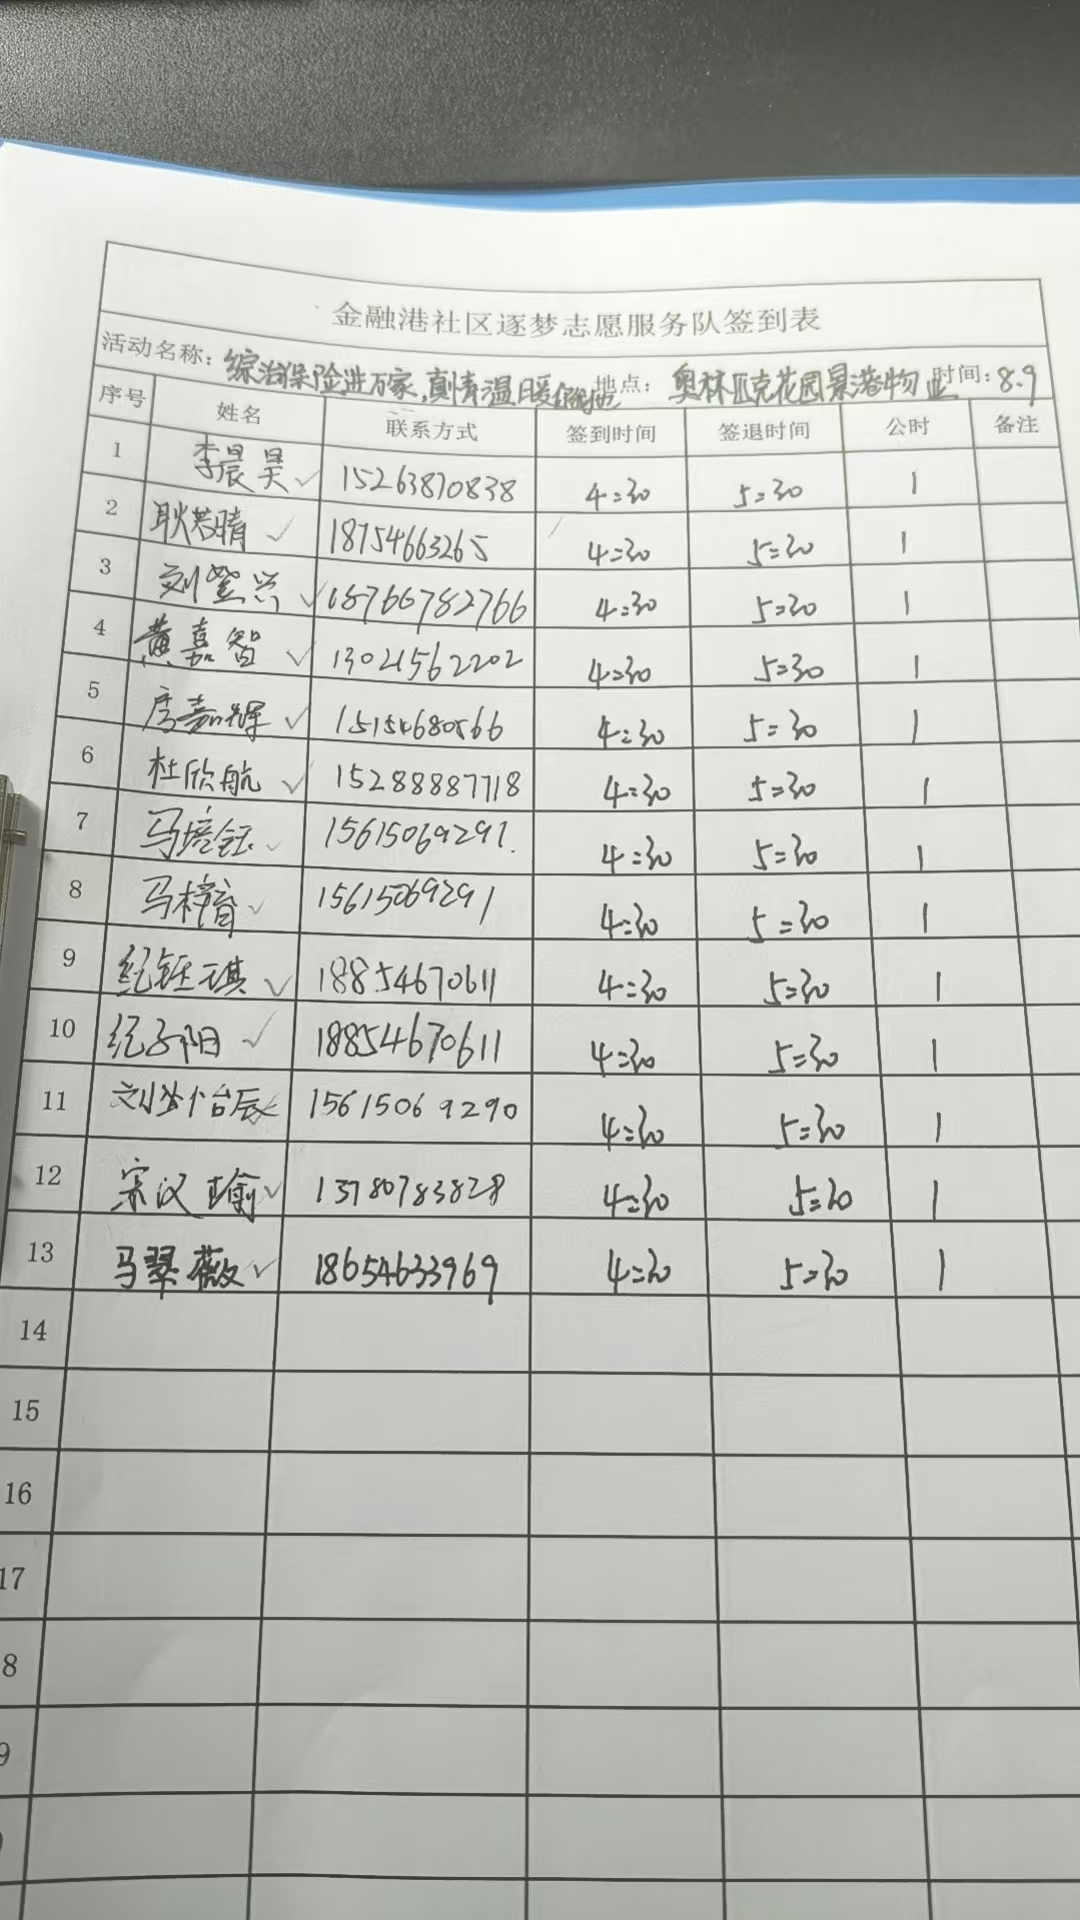 金融港社区逐梦志愿服务队签到表
活动名称：综治保险进万家，真情温暖 地点：奥林匹克花园景港物业 时间：8.9
序号 姓名 联系方式 签到时间 签退时间 公时 备注
1 李晨昊✓ 15263870838 4:30 5:30 1
2 耿若晴✓ 18754663265 4:30 5:30 1
3 刘登兴✓ 18766782766 4:30 5:30 1
4 黄嘉智✓ 13021562202 4:30 5:30 1
5 房嘉辉✓ 15154680566 4:30 5:30 1
6 杜欣航✓ 15288887718 4:30 5:30 1
7 马培钰✓ 15615069291. 4:30 5:30 1
8 马梓睿✓ 15615069291 4:30 5:30 1
9 纪钰琪✓ 18854670611 4:30 5:30 1
10 纪子阳✓ 18854670611 4:30 5:30 1
11 刘怡辰 15615069290 4:30 5:30 1
12 宋汉瑜✓ 13780783828 4:30 5:30 1
13 马翠薇✓ 18654633969 4:30 5:30 1
14
15
16
17
8
9